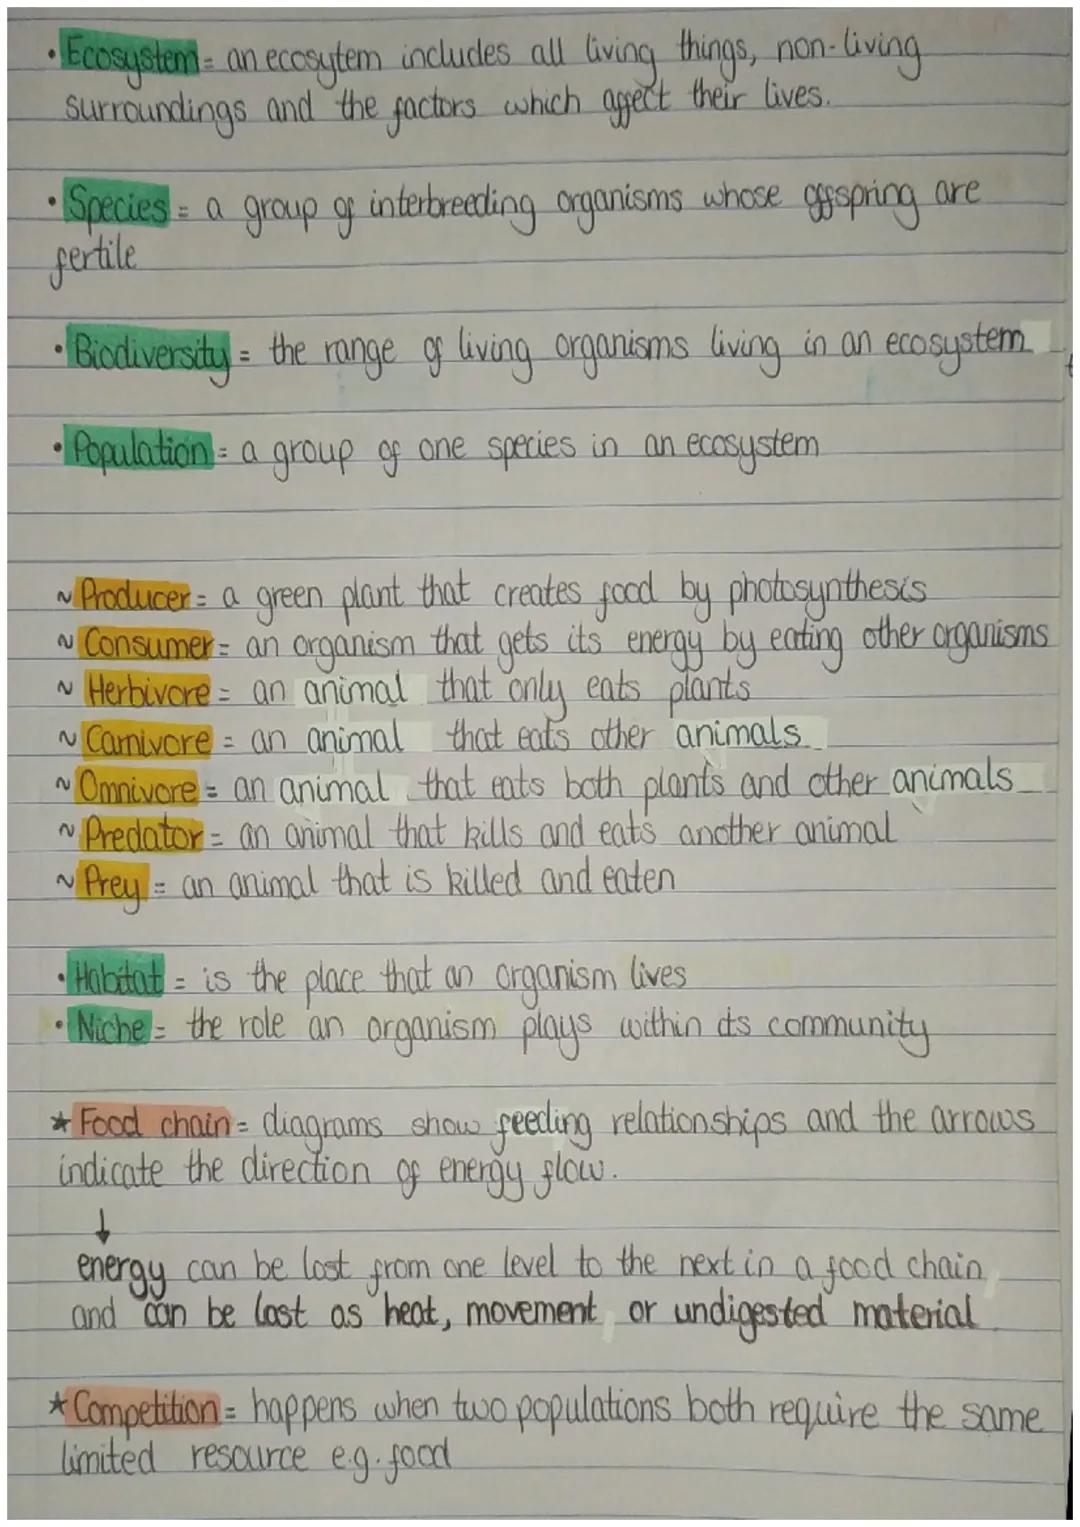 • Ecosystem = an ecosytem includes all living things, non-living
surroundings and the factors which affect their lives.
• Species = a group of interbreeding organisms whose offspring are
fertile
• Biodiversity = the range of living organisms living in an ecosystem
• Population = a group of one species in an ecosystem
~ Producer = a green plant that creates food by photosynthesis
~ Consumer = an organism that gets its energy by eating other organisms
~ Herbivore = an animal that only eats plants
~ Carnivore = an animal that eats other animals
~ Omnivore = an animal that eats both plants and other animals
~ Predator = an animal that kills and eats another animal
~ Prey = an animal that is killed and eaten
• Habitat = is the place that an organism lives
• Niche = the role an organism plays within its community
* Food chain = diagrams show feeding relationships and the arrows
indicate the direction of energy flow.
↓
energy can be lost from one level to the next in a food chain
and can be lost as heat, movement or undigested material
* Competition = happens when two populations both require the same
limited resource e.g. food